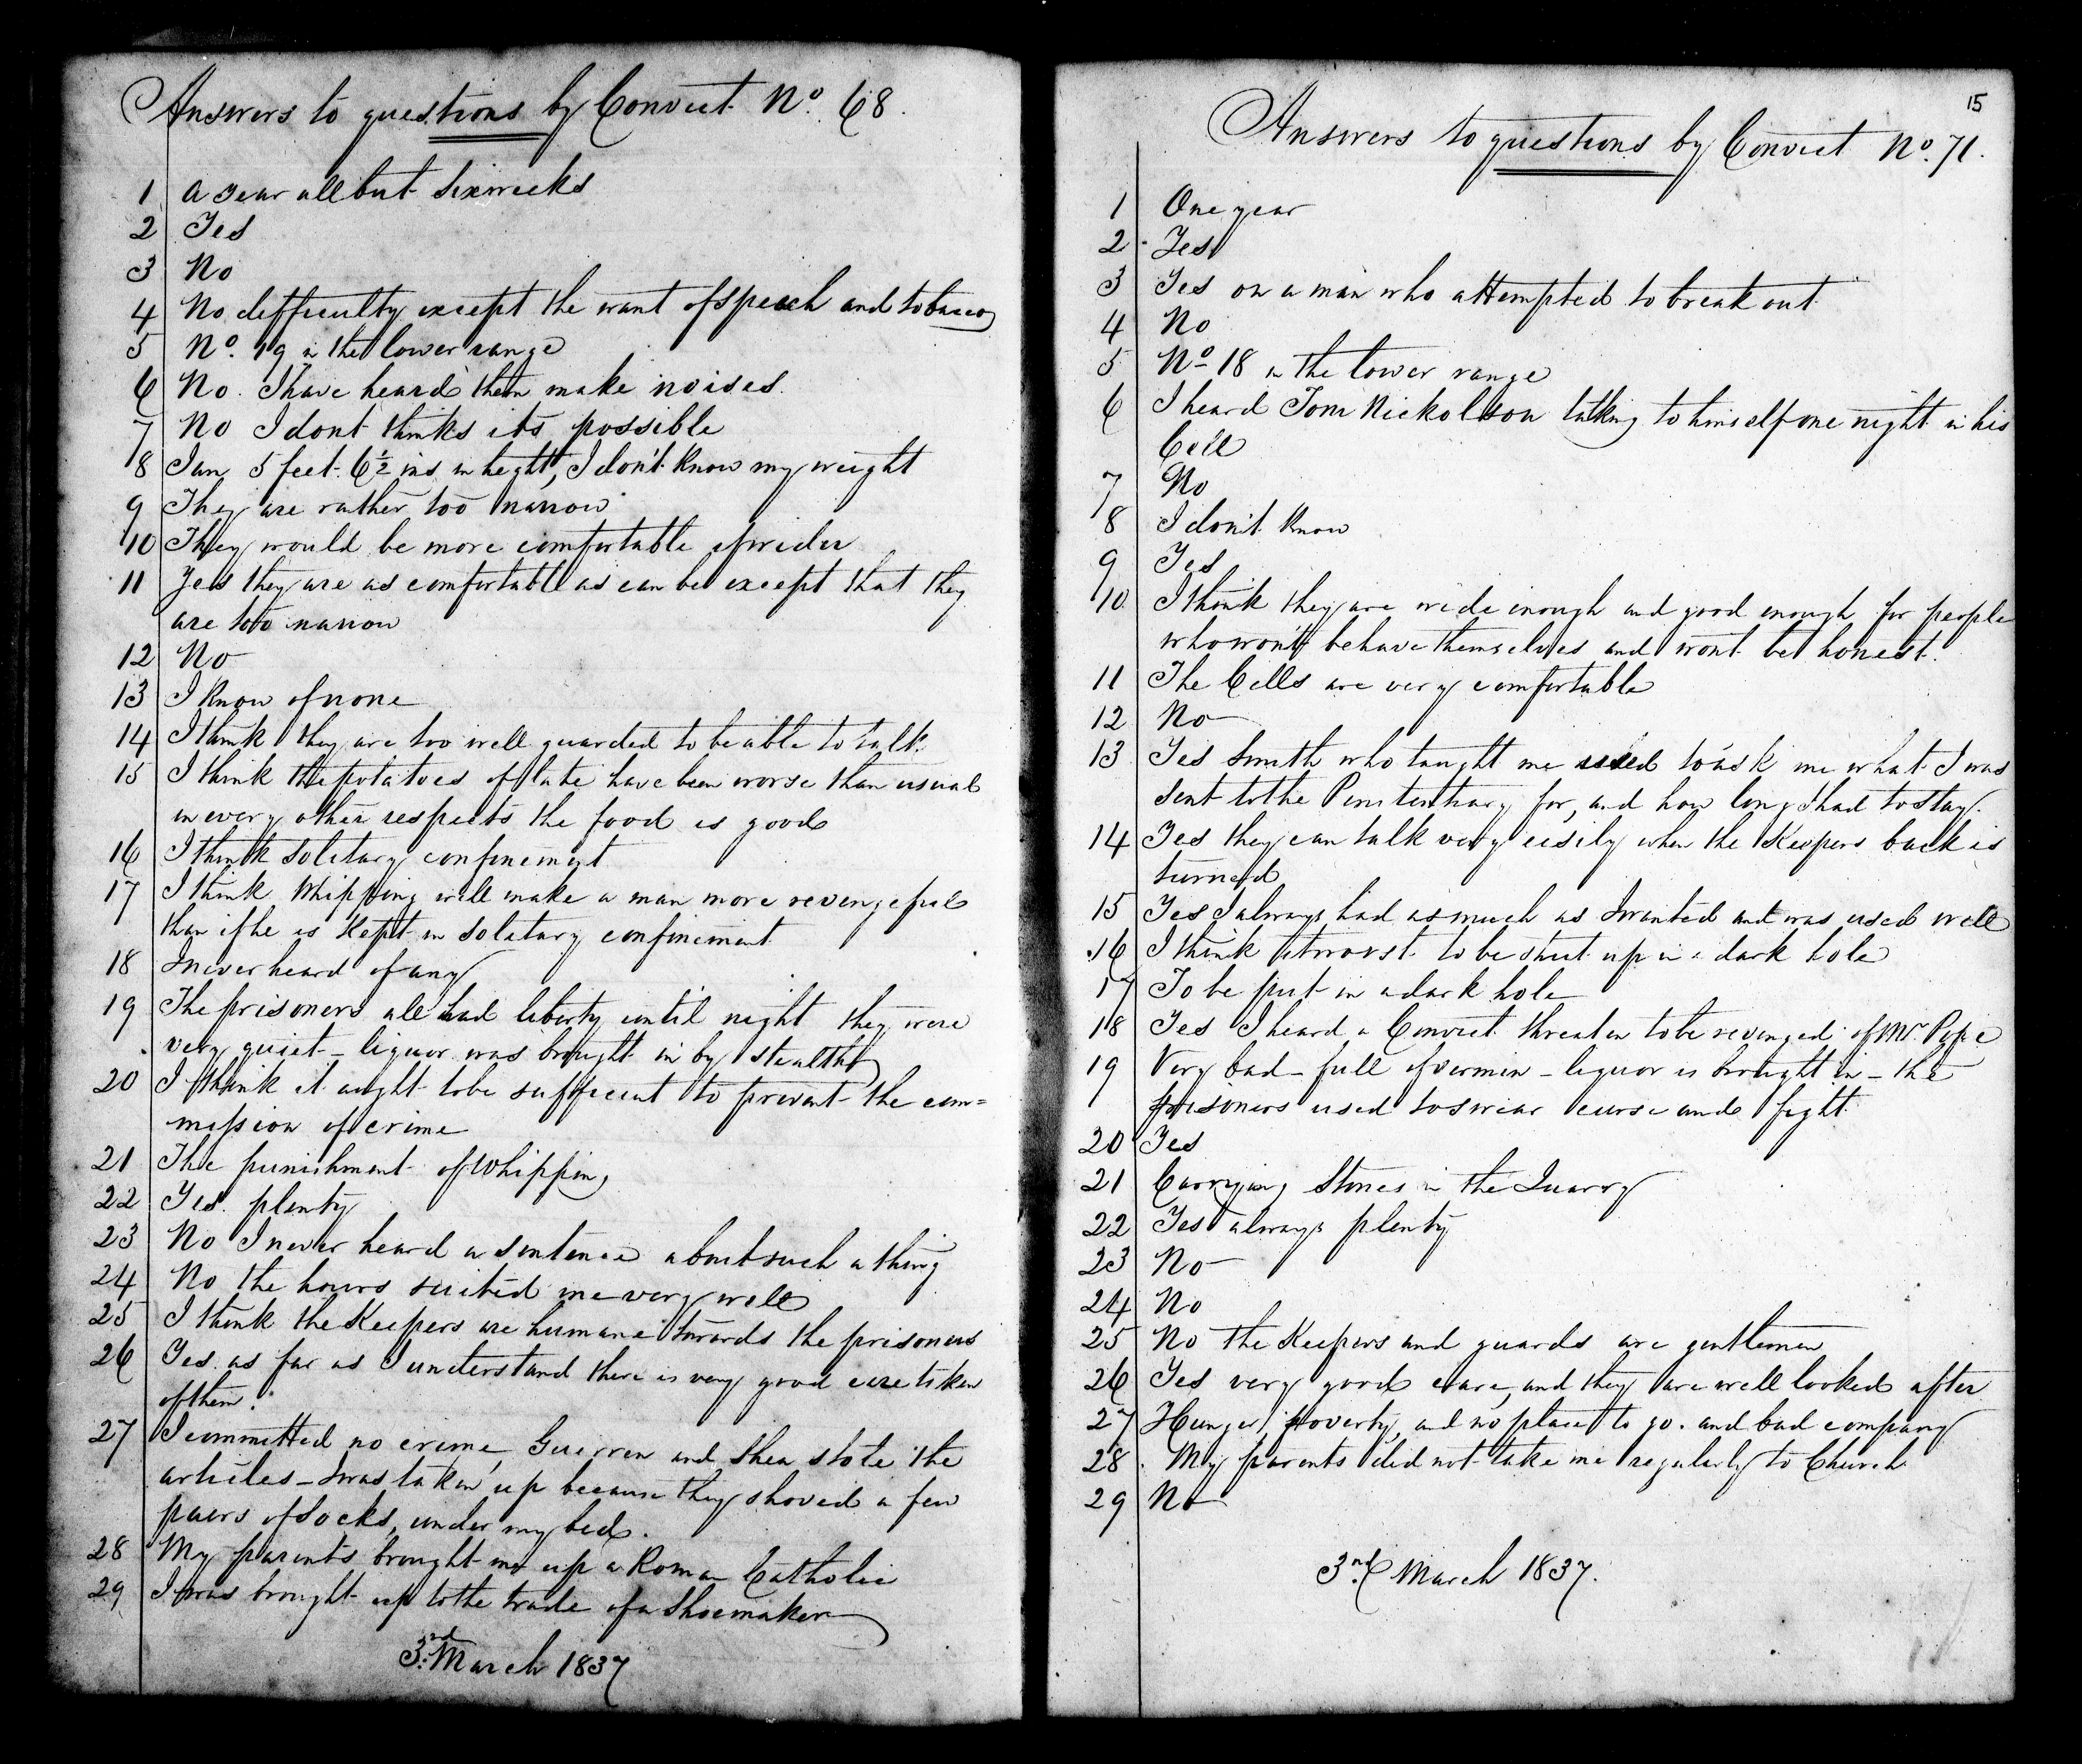 Answers to questions by Convict No. 68.
1 a year all but six weeks
2 Yes
3 No
4 No difficulty except the want of speach and tobacco
5 No. 19 in the lower range
6 No. I have heard them make noises.
7 No I dont thinks its possible
8 I am 5 feet 6½ ins in height, I don't know my weight
9 They are rather too narrow
10 They would be more comfortable if wider
11 Yes they are as comfortable as can be except that they
are too narrow
12 No
13 I know of none
14 I think they are too well guarded to be able to talk.
15 I think the potatoes of late have been worse than usual
in every other respects the food is good
16 I think solitary confinement
17 I think Whipping will make a man more revengeful
than if he is Kept in solitary confinement
18 I never heard of any
19 The prisoners all had liberty until night they were
very quiet – liquor was brought in by stealth
20 I think it aught to be sufficient to prevent the com=
mission of crime
21 The punishment of Whipping
22 Yes. plenty
23 No I never heard a sentence about such a thing
24 No the hours suited me very well
25 I think the Keepers are humane towards the prisoners
26 Yes. as far as I understand there is very good care taken
of them.
27 I committed no crime, Guerren and Shea stole the
articles – I was taken up because they shoved a few
pairs of Socks, under my bed.
28 My parents brought me up a Roman Catholic
29 I was brought up to the trade of a Shoemaker
3rd. March 1837
15
Answers to questions by Convict No. 71.
1 One year
2 Yes
3 Yes on a man who attempted to break out
4 No
5 No 18 in the lower range
6 I heard Tom Nickolson talking to himself one night in his
Cell
7 No
8 I don't Know
9 Yes
10 I think they are wide enough and good enough for people
who won't behave themselves and wont be honest.
11 The Cells are very comfortable
12 No
13 Yes Smith who taught me used to ask me what I was
sent to the Penitentiary for, and how long I had to stay.
14 Yes they can talk very easily when the Keepers back is
turned
15 Yes I always had as much as I wanted and was used well
16 I think it worst to be shut up in a dark hole
17 To be put in a dark hole
18 Yes I heard a Convict threaten to be revenged of Mr. Pope
19 Very bad – full of vermin – liquor is brought in – the
prisoners used to swear curse and fight
20 Yes
21 Carrying Stones in the Quarry
22 Yes always plenty
23 No
24 No
25 No the Keepers and guards are gentlemen
26 Yes very good care, and they are well looked after
27 Hunger, poverty, and no place to go. and bad company
28 My parents did not take me regularly to Church
29 No
3rd. March 1837.